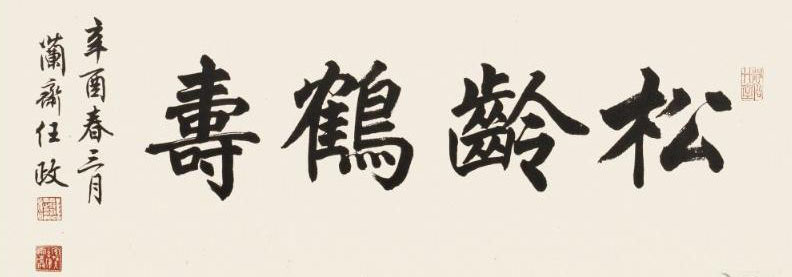 松齡鶴壽
辛酉春三月
蘭齋任政